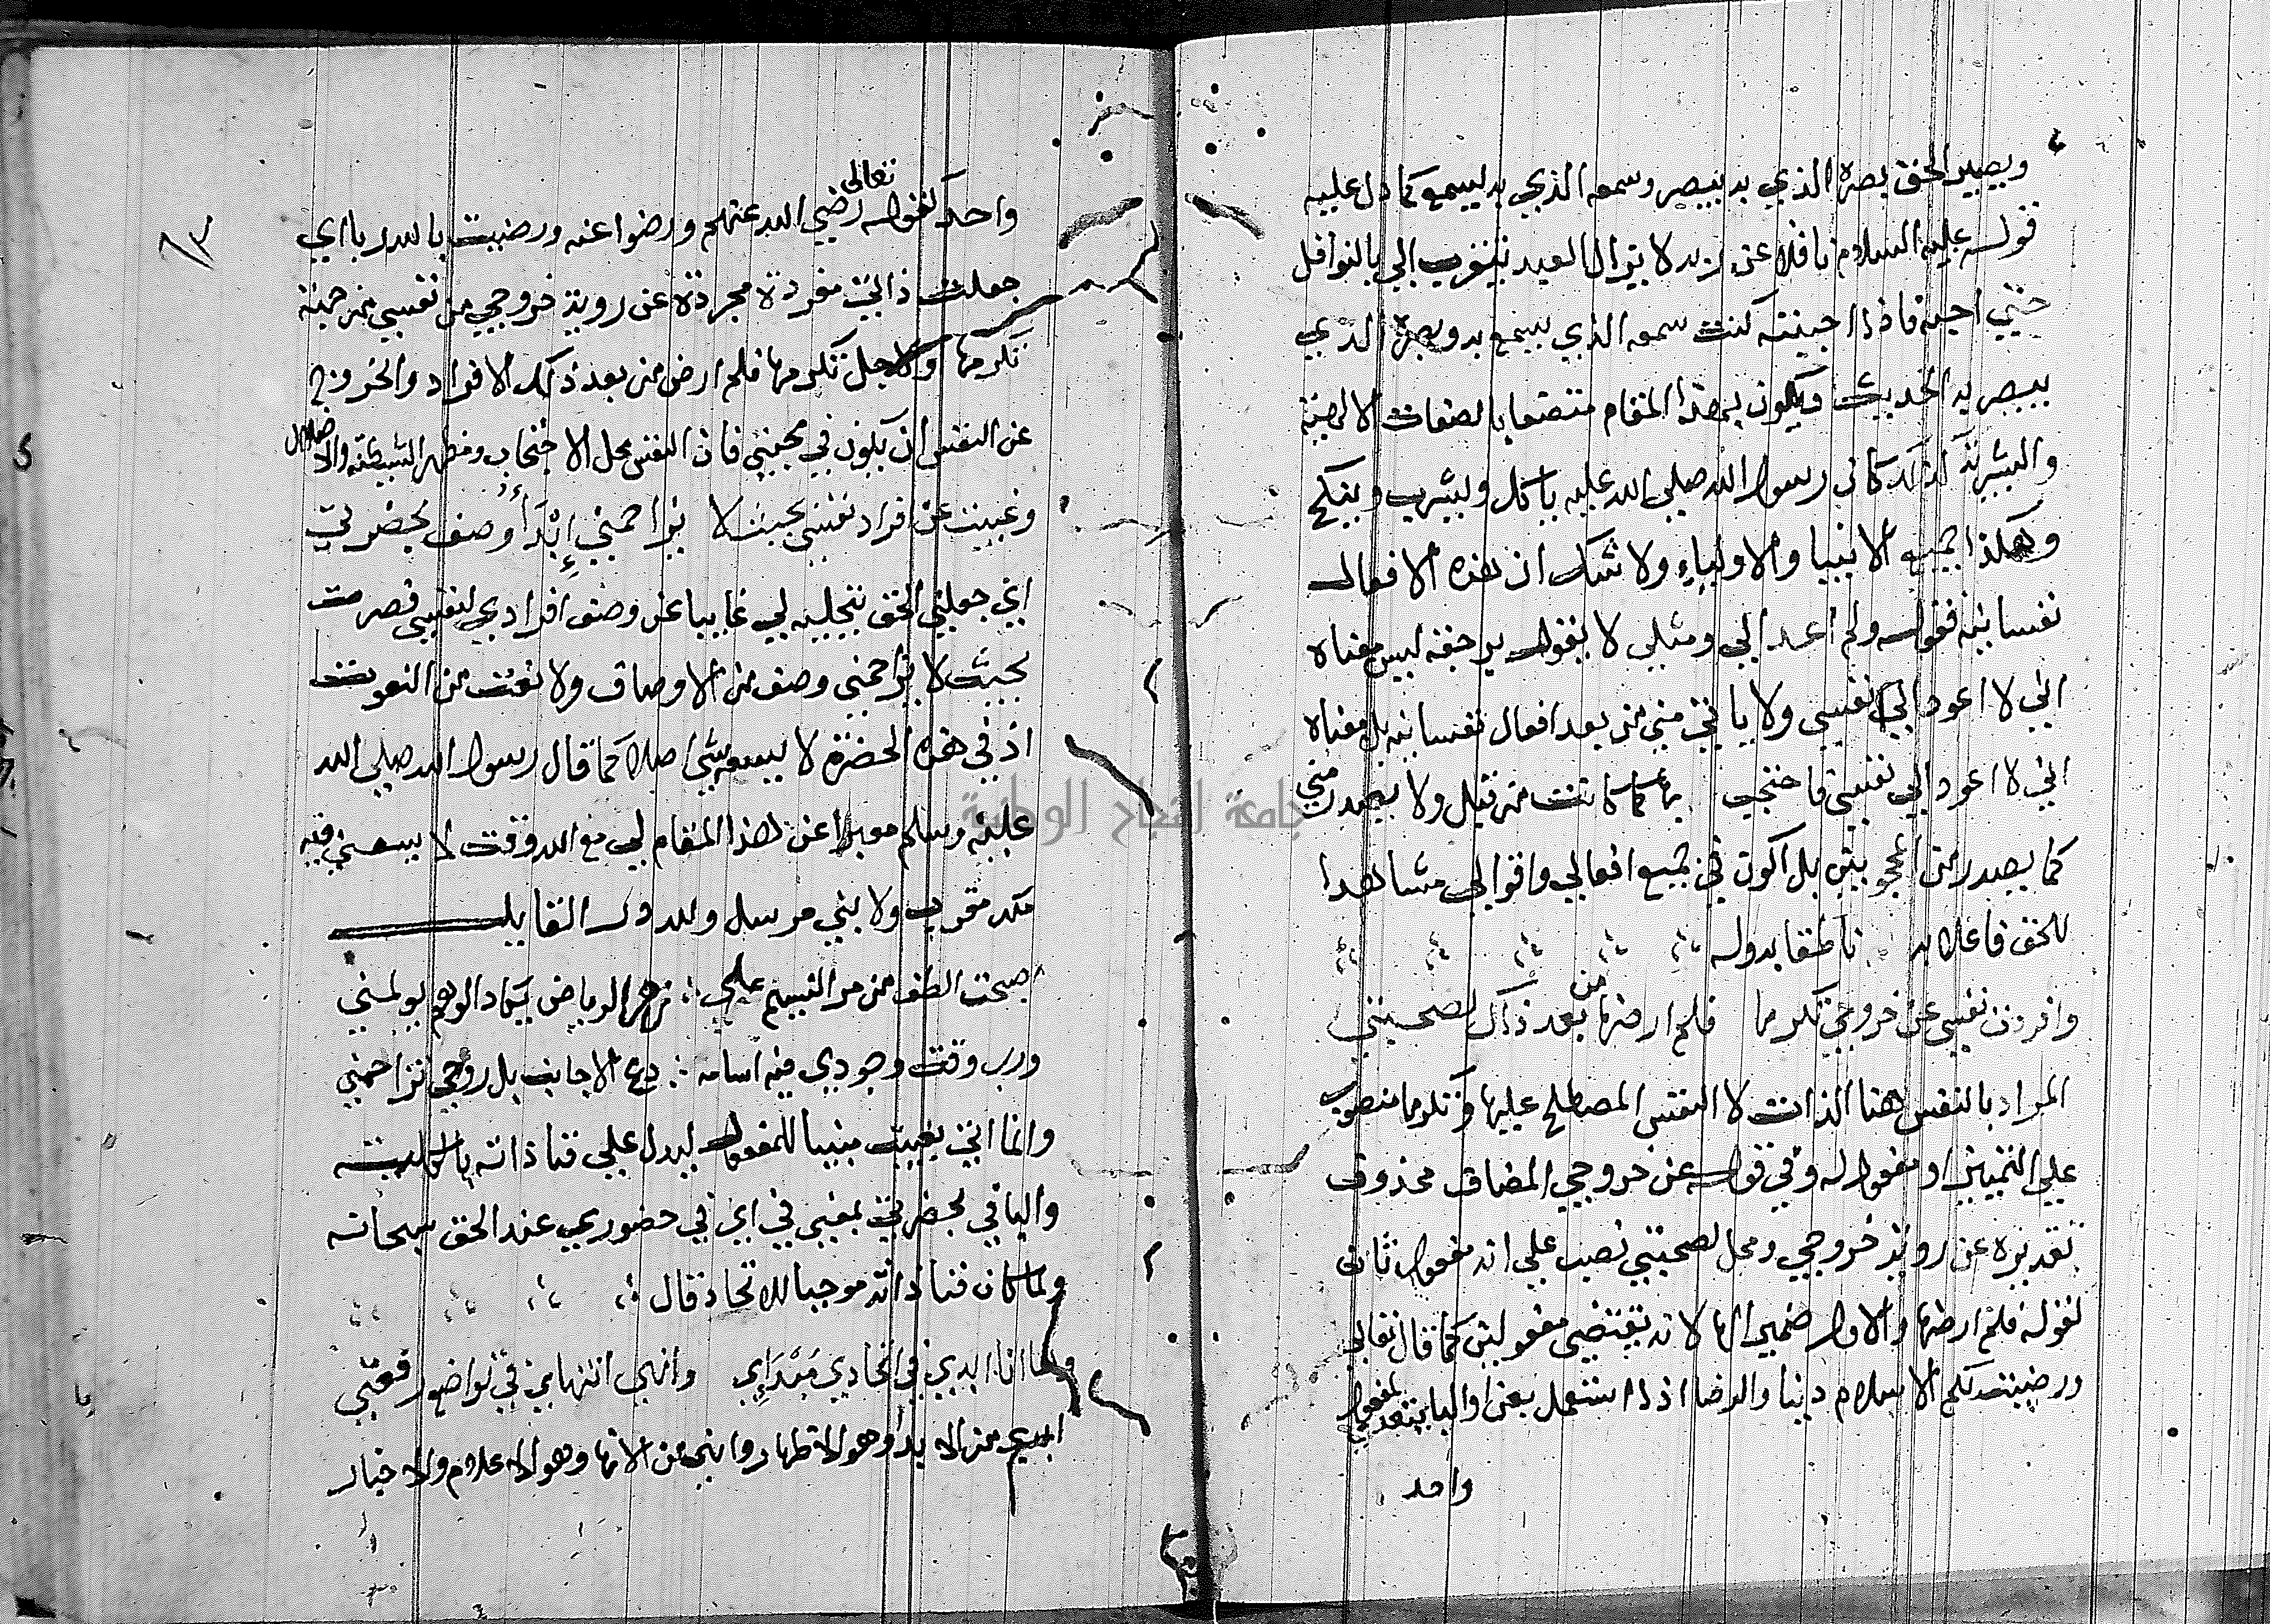 ويصير الحق بصره الذي به يبصر وسمعه الذي به يسمع كما دل عليه
قوله عليه السلام ناقلا عن ربه لا يزال العبد يتقرب الي بالنوافل
حتي احبه فاذا احببته كنت سمعه الذي يسمع به وبصره الذي
يبصر به الحديث ويكون بهذا المقام متصفا بالصفات الالهية
والبشرية لذلك كان رسول الله صلي الله عليه ياكل ويشرب وينكح
وهكذا جميع الانبيا والاولياء ولا شك ان هذه الافعال
نفسانية فقوله ولم اعد الي ومثلي لا يقول برجعة ليس معناه
اني لا اعود الي نفسي ولا ياتي مني من بعد افعال نفسانيه بل معناه
اني لا اعود الي نفسي فاحتجب بها كما كانت من قبل ولا يصدر مني
كما يصدر من المحجوبين بل اكون في جميع افعالي واقوالي مشاهدا
للحق فاعلا به ناطقا بدوله
وافردت نفسي عن خروجي تكرما فلم ارضها من بعد ذاك لصحبتي
المراد بالنفس هنا الذات لا النفس المصطلح عليها وتكرما منصوب
علي التمييز او مفعول له وفي قوله عن خروجي المضاف محذوف
تقديره عن روية خروجي ومحل لصحبتي نصب علي انه مفعول ثاني
لقوله فلم ارضها والاول ضمير الها لانه يقتضي مفعولين كما قال تعالي
ورضيت لكم الاسلام دينا والرضا اذا استعمل بعن او البا يتعدي لمفعول
واحد
واحد كقوله تعالي رضي الله عنهم ورضوا عنه ورضيت بالله ربا اي
جعلت ذاتي مفردة مجردة عن روية خروجي من نفسي من جهة
تكرمها ولاجل تكرمها فلم ارض من بعد ذلك الافراد والخروج
عن النفس ان يكون في صحبتي فان النفس محل الاحتجاب ومظهر الشيطنة والاضلال
وغيبت عن افراد نفسي بحيث لا يزاحمني إِبْدَأُ وصف بحضرتي
اي جعلني الحق بتجليه لي غايبا عن وصف افرادي لنفسي فصرت
بحيث لا يزاحمني وصف من الاوصاف ولا نعت من النعوت
اذ في هذه الحضرة لا يسعه شي اصلا كما قال رسول الله صلي الله
عليه وسلم معبرا عن هذا المقام لي مع الله وقت لا يسعني فيه
ملك مقرب ولا نبي مرسل ولله در القايل
اصبحت الطف من مر النسيم علي زهر الرياض يكاد الوهم يولمني
ورب وقت وجودي فيه اسامه دع الاجانب بل روحي تزاحمني
وانما اتي بغيبت مبنيا للمفعول ليدل علي فنا ذاته بالكلية
والبا في بحضرتي بمعني في اي في حضوري عند الحق سبحانه
ولما كان فنا ذاته موجبا للاتحاد قال
وها انا ابدي في اتحادي مَبْدَاي وانهي انتهاي في تواضع رفعتي
ابدي من الابداء وهو الاظهار وانهي من الانها وهو الاعلام والاخبار
٨٣
جامعة النجاح الوطنية